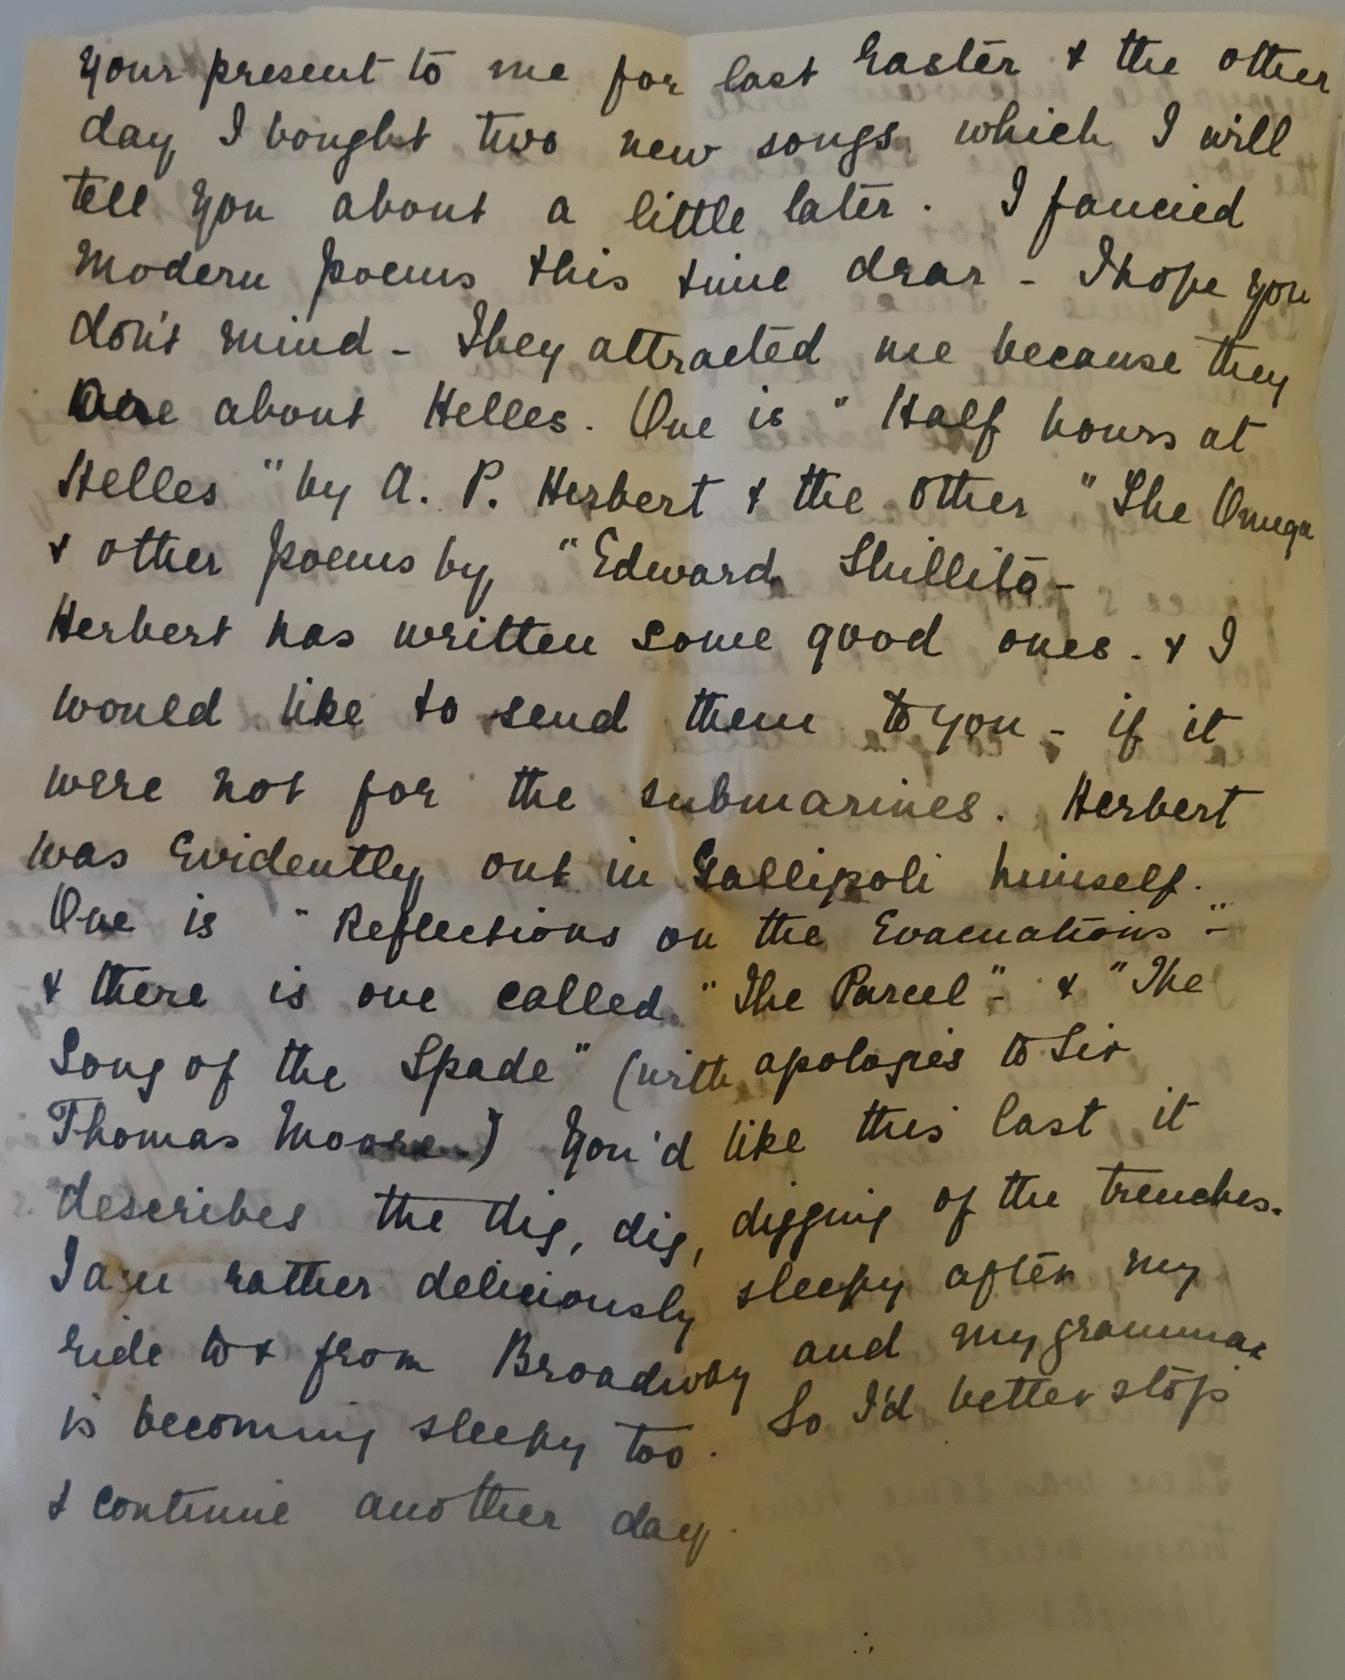 your present to me for last Easter & the other
day I bought two new songs which I will
tell you about a little later. I fancied
Modern poems this time dear - I hope you
don't mind - They attracted me because they
are about Helles. One is "Half hours at
Helles" by A. P. Herbert & the other "The Omega
& other poems by "Edward Shillito -
Herbert has written some good ones. & I
would like to send them to you - if it
were not for the submarines. Herbert
was evidently out in Gallipoli himself.
One is "Reflections on the Evacuations" -
& there is one called "The Parcel" - & "The
Song of the Spade" (with apologies to Sir
Thomas Moore) You'd like this last it
describes the dig, dig, digging of the trenches.
I am rather deliciously sleepy after my
ride to & from Broadway and my grammar
is becoming sleepy too. So I'd better stop
& continue another day.